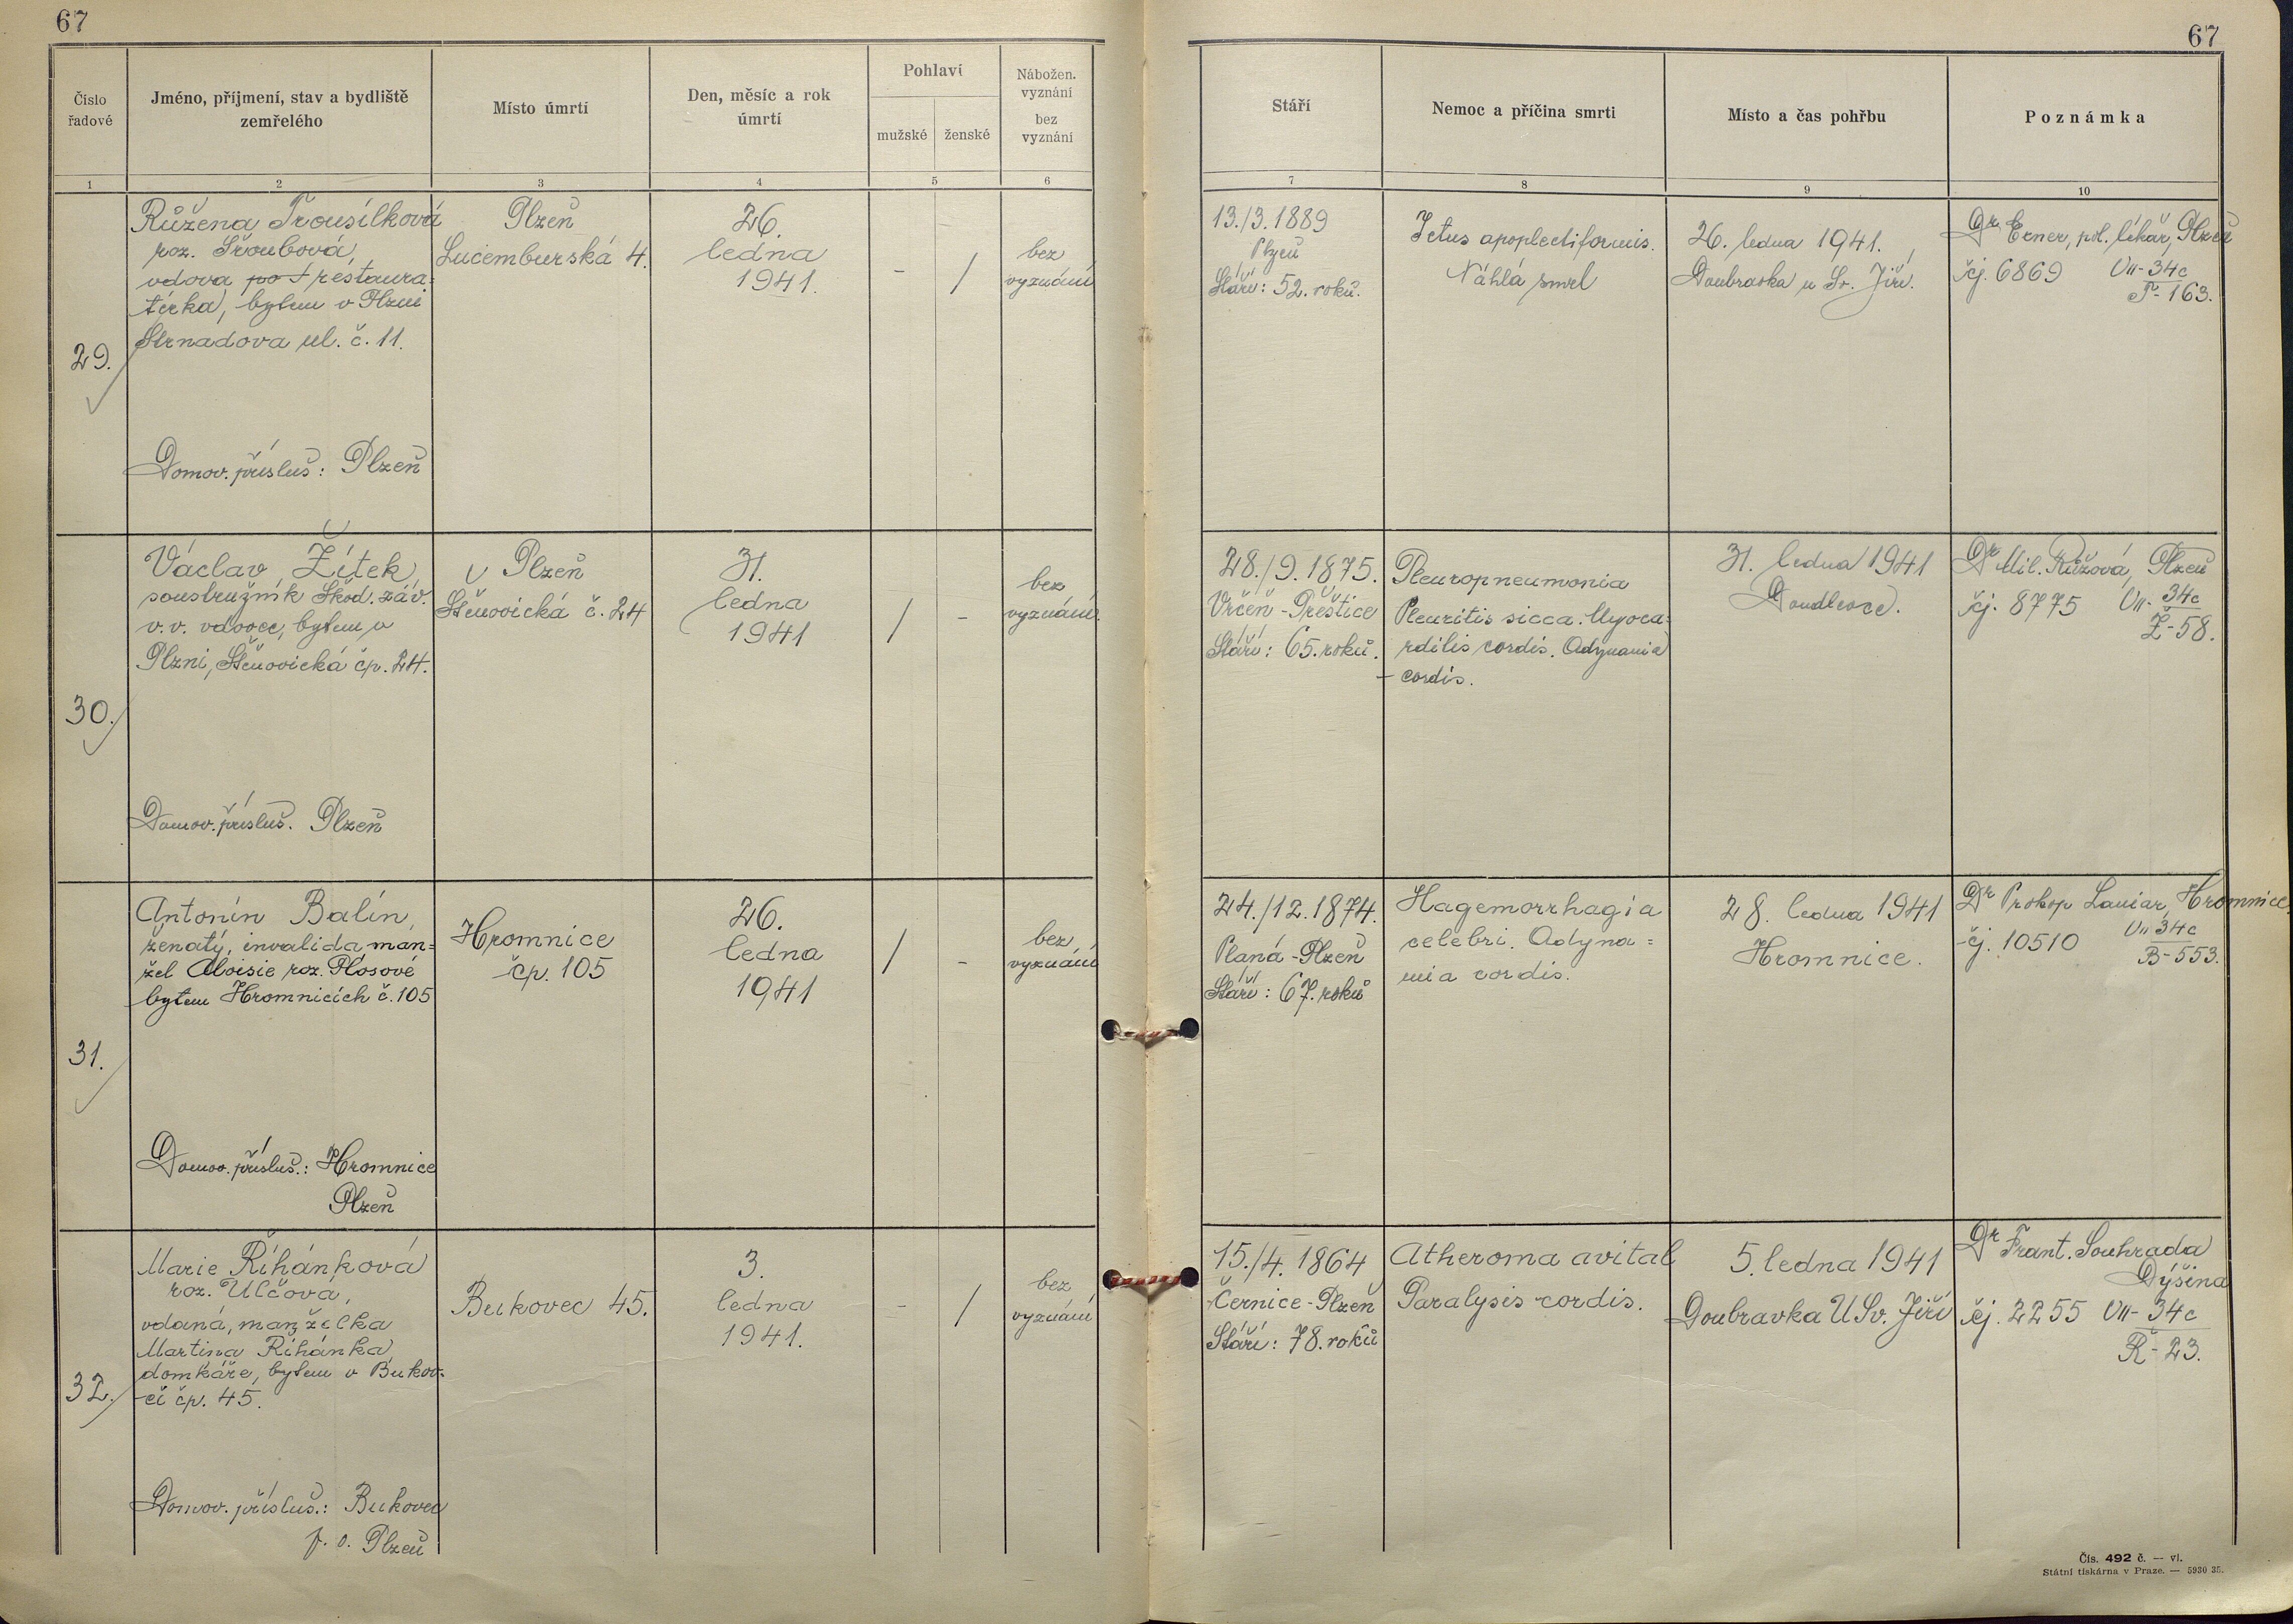 67
67
Číslo řadové
Jméno, příjmení, stav a bydliště
zemřelého
Místo úmrtí
Den, měsíc a rok
úmrtí
Pohlaví
mužské
ženské
Nábožen.
vyznání
bez
vyznání
Stáří
Nemoc a příčina smrti
Místo a čas pohřbu
Poznámka
1
2
3
4
5
6
7
8
9
10
29.
Růžena Trousílková
roz. Šroubová,
vdova po restaura-
térka), bytem v Plzni
Strnadova ul. č. 11.
Domov. přísluš: Plzeň
Plzeň
Lucemburská 4.
26.
ledna
1941.
-
/
bez
vyznání
13./3.1889
Plzeň
Stáří: 52. roků.
Ictus apoplectiformis.
Náhlá smrt
26. ledna 1941.
Doubravka u Sv. Jiří.
Dr Exner, pol. lékař, Plzeň
čj. 6869 VII-34c
T-163.
30.
Václav Žítek
soustružník Škod. záv.
v.v. vdovec, bytem v
Plzni, Štěnovická čp. 24.
Domov. přísluš. Plzeň
v Plzeň
Štěnovická č. 24
31.
ledna
1941
/
-
bez
vyznání.
28./9.1875.
Vrčeň-Přeštice
Stáří: 65. roků.
Pleuropneumonia
Pleuritis sicca. Myoca-
rditis cordis. Adynamia
cordis.
31. ledna 1941
Doudlevce.
Dr Mil. Růžová, Plzeň
čj. 8775 VII-34c
Ž-58.
31.
Antonín Balín,
ženatý, invalida man=
žel Aloisie roz. Plosové
bytem Hromnicích č. 105
Domov. přísluš.: Hromnice
Plzeň
Hromnice
čp. 105
26.
ledna
1941
/
-
bez
vyznání
24./12.1874.
Planá-Plzeň
Stáří: 67. roků
Hagemorrhagia
celebri. Adyna=
mia cordis.
28. ledna 1941
Hromnice.
Dr Prokop Laniar, Hromnice.
čj. 10510 VII 34c
B-553.
32.
Marie Říhánková
roz. Ulčová,
vdaná, manželka
Martina Říhánka,
domkáře, bytem v Bukov-
ci čp. 45.
Domov. přísluš.: Bukovec
p. o. Plzeň
Bukovec 45.
3.
ledna
1941.
-
/
bez
vyznání
15./4. 1864
Černice-Plzeň
Stáří: 78. roků
Atheroma avital
Paralysis cordis.
5. ledna 1941
Doubravka U Sv. Jiří
Dr Frant. Souhrada
Dýšina
čj. 2255 VII-34c
Ř-23.
Čís. 492 č. — vl.
Státní tiskárna v Praze. — 5930 35.